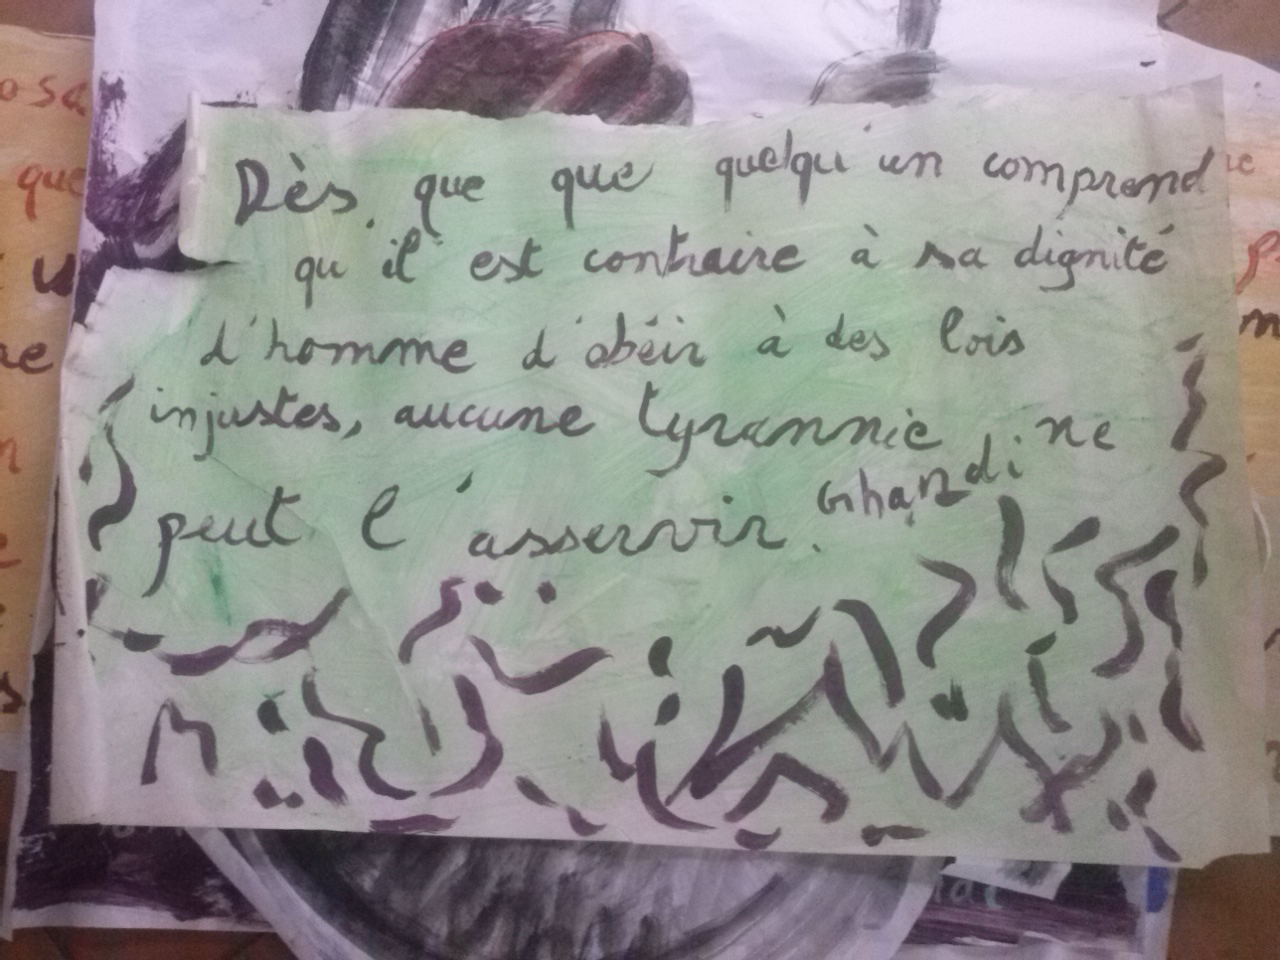 Dès que que quelqu'un comprend
qu il est contraire à sa dignité
d'homme d'obéir à des lois
injustes, aucune tyrannie ne
peut l'asservir. Ghandi
osa
que